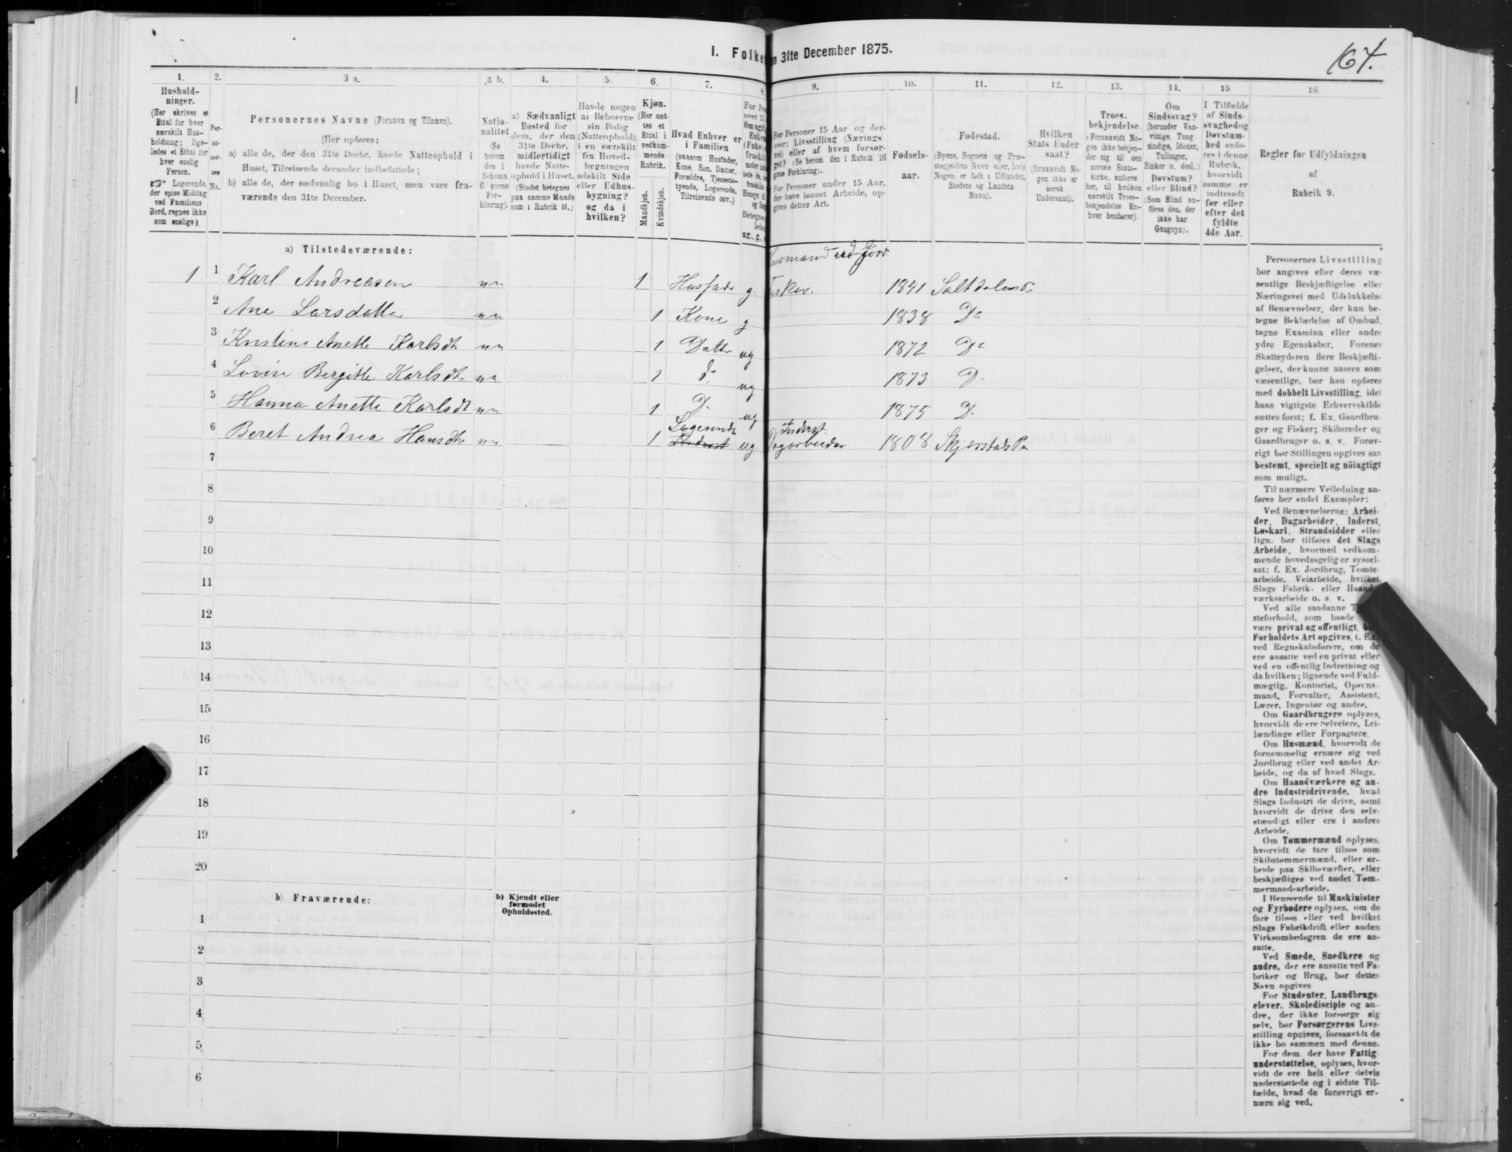 I. Folke
n 31te December 1875.
164.
1. 2. 3 a. 3 b. 4. 5. 6. 7. 8. 9. 10. 11. 12. 13. 14. 15 16.
Hushold-
ninger.
(Her skrives et
Ettal for hver
særskilt Hus-
holdning; lige-
ledes et Ettal for
hver enslig
Person.
Logerende,
der spise Middag
ved Familiens
Bord, regnes ikke
som enslige).
Per-
so-
ner-
nes
No.
Personernes Navne (Fornavn og Tilnavn).
(Her opføres:
a) alle de, der den 31te Decbr. havde Natteophold i
Huset, Tilreisende derunder indbefattede;
b) alle de, der sædvanlig bo i Huset, men vare fra-
værende den 31te December.
Natio-
nalitet
(Se
herom
den i
Schema
C givne
For-
klaring).
a) Sædvanligt
Bosted for
dem, der den
31te Decbr.
midlertidigt
havde Natte-
ophold i Huset.
(Stedet betegnes
paa samme Maade
som i Rubrik 11.)
Havde nogen
af Beboerne
sin Bolig
(Natteophold)
i en særskilt
fra Hoved-
bygningen
adskilt Side
eller Udhus-
bygning?
og da i
hvilken?
Kjøn.
(Her sæt-
tes et
Ettal i
vedkom-
mende
Rubrik.
Mandkjøn.
Kvindekjøn.
Hvad Enhver er
i Familien
(saasom Husfader,
Kone, Søn, Datter,
Forældre, Tjeneste-
tyende, Logerende,
Tilreisende osv.)
For Personer 15 Aar og der-
over: Livsstilling (Nærings-
vei) eller af hvem forsør-
get? (Se herom den i Rubrik 16
givne Forklaring).
For Personer under 15 Aar,
der have lønnet Arbeide, op-
gives dettes Art.
Fødsels-
aar.
Fødested.
(Byens, Sognets og Præ-
stegjeldets Navn eller, hvis
Nogen er født i Udlandet,
Stedets og Landets
Navn).
Hvilken
Stats Under
saat?
(forsaavidt No-
gen ikke er
norsk
Undersaat).
Troes-
bekjendelse.
(Forsaavidt No-
gen ikke bekjen-
der sig til den
norske Stats-
kirke, anføres
her, til hvilken
særskilt Troes-
bekjendelse En-
hver henhører).
Om
Sindssvag?
(herunder Van-
vittige, Tung
sindige, Idioter,
Tullinger,
Sinker o. desl.)
Døvstum?
eller Blind?
(Som Blind an-
føres den, der
ikke har
Gangsyn).
I Tilfælde
af Sinds-
svaghedog
Døvstum-
hed anfø-
res i denne
Rubrik,
hvorvidt
samme er
indtraadt
før eller
efter det
fyldte
4de Aar.
Regler for Udfyldningen
af
Rubrik 9.
a) Tilstedeværende:
1 1 Karl Andreasen nn 1 Husfader g Husmand ud Jord Fisker 1841 Saltdalen
2 Ane Larsdatter nn 1 Kone g 1838 Do
3 Kristine Anette Karlsdt nn 1 Datter ug 1872 Do
4 Lovise Bergitte Karlsdt nn 1 do ug 1873 D.
5 Hanna Anette Karlsdt nn 1 D. ug 1875 D.
6 Beret Andrea Hansdt nn 1 Logerende ug Inderst Dagarbeider 1808 Skjerstad P
7
8
9
10
11
12
13
14
15
16
17
18
19
20
b) Fraværende:
b) Kjendt eller
formodet
Opholdssted.
1
2
3
4
5
6
Personernes Livsstilling
bør angives efter deres væ-
sentlige Beskjæftigelse eller
Næringsvei med Udelukkelse
af Benævnelser, der kun be-
tegne Beklædelse af Ombud,
tagne Examina eller andre
ydre Egenskaber. Forener
Skatteyderen flere Beskjæfti-
gelser, der kunne ansees som
væsentlige, bør han opføres
med dobbelt Livsstilling, idet
hans vigtigste Erhvervskilde
sættes først; f. Ex. Gaardbru-
ger og Fisker; Skibsreder og
Gaardbruger o. s. v. Forøv-
rigt bør Stillingen opgives saa
bestemt, specielt og nöiagtigt
som muligt.
Til nærmere Veiledning an-
føres her endel Exempler:
Ved Benævnelserne: Arbei-
der, Dagarbeider, Inderst,
Løskarl, Strandsidder eller
lign. bør tilføies det Slags
Arbeide, hvormed vedkom-
mende hovedsagelig er syssel-
sat; f. Ex. Jordbrug, Tomte-
arbeide, Veiarbeide, hvilket
Slags Fabrik- eller Haand-
værksarbeide o. s. v.
Ved alle saadanne
steforhold, som baade
være privat og offentligt,
Forholdets Art opgives, t. Ex.
ved Regnskabsførere, om de
ere ansatte ved en privat eller
ved en offentlig Indretning og
da hvilken; lignende ved Fuld-
mægtig, Kontorist, Opsyns-
mand, Forvalter, Assistent,
Lærer, Ingeniør og andre.
Om Gaardbrugere oplyses,
hvorvidt de ere Selveiere, Lei-
lændinge eller Forpagtere.
Om Husmænd, hvorvidt de
fornemmelig ernære sig ved
Jordbrug eller ved andet Ar-
beide, og da af hvad Slags.
Om Haandværkere og an-
dre Industridrivende, hvad
Slags Industri de drive, samt
hvorvidt de drive den selv-
stændigt eller ere i andres
Arbeide.
Om Tømmermænd oplyses,
hvorvidt de fare tilsøs som
Skibstømmermænd, eller ar-
beide paa Skibsværfter, eller
beskjæftiges ved andet Tøm-
mermandsarbeide.
I Henseende til Maskinister
og Fyrbødere oplyses, om de
fare tilsøs eller ved hvilket
Slags Fabrikdrift eller anden
Virksomhedsgren de ere an-
satte.
Ved Smede, Snedkere og
andre, der ere ansatte ved Fa-
briker og Brug, bør dettes
Navn opgives
For Studenter, Landbrugs-
elever, Skoledisciple og an-
dre, der ikke forsørge sig
selv, bør Forsørgerens Livs-
stilling opgives, forsaavidt de
ikke bo sammen med denne.
For dem der have Fattig-
understøttelse, oplyses, hvor-
vidt de ere helt eller delvis
understøttede og i sidste Til-
fælde, hvad de forøvrigt er-
nære sig ved.